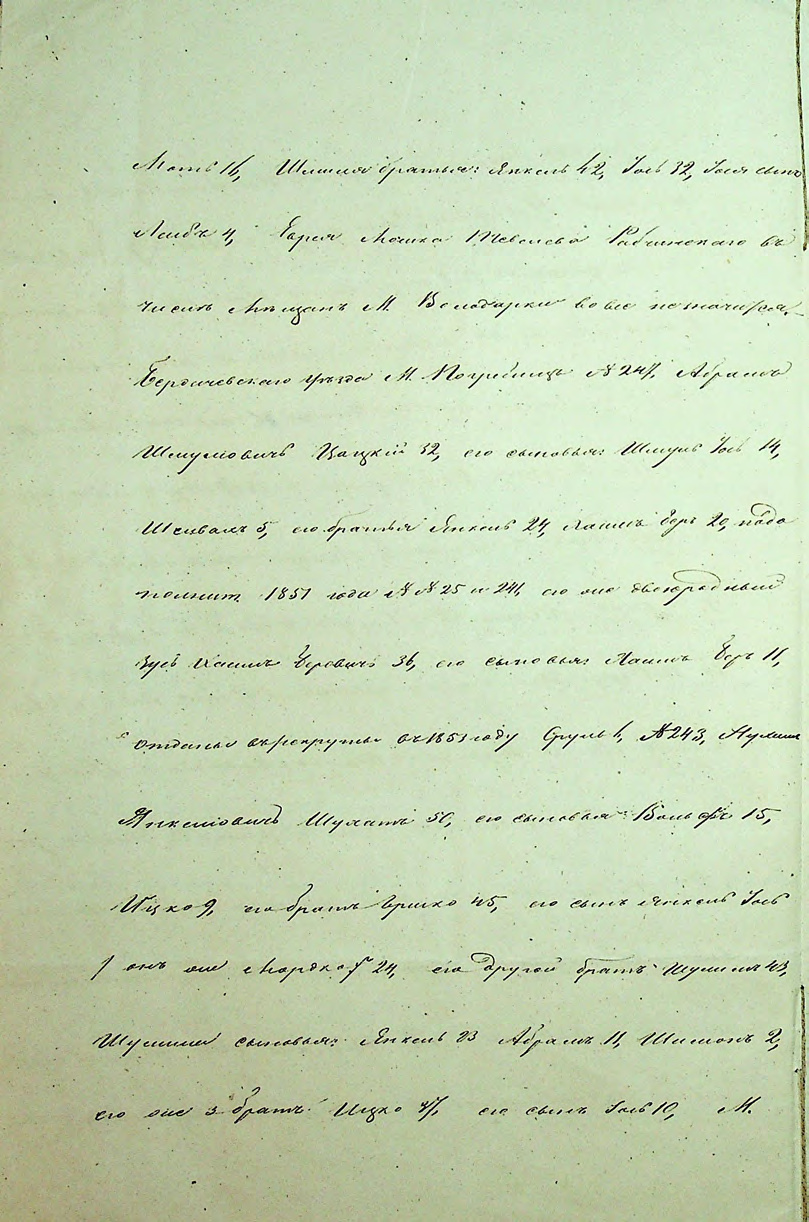 Моть 16, Шлиля братья: Янкель 42, Іось 32, Іося сынъ
Лейбъ 4, Еврея Мошка Тевелева Рабчинскаго въ
числѣ Мѣщанъ М. Володарки вовсе незначится.
Бердичевскаго уѣзда М. Погребищъ № 247, Абрамъ
Шмуліовичъ Цацкій 32, его сыновья: Шмуль Іось 14,
5, его братья Янкель 24, Хаимъ Беръ 20, подо
полнит. 1851 года № № 25 и 241, его же двоюродный
Зусь Хаимъ Беровичъ 36, его сыновья: Хаимъ Беръ 11,
отданы въ рекруты въ 1853 году Сруль 1, № 243,
Янкеліовичъ 50, его сыновья: Вольфъ 15,
Ицко 9, его братъ Ершко 45, его сынъ Янкель Іось
/ онъ же Мордко / 24, его другой братъ Шулимъ 43,
Шулима сыновья: Янкель 23 Абрамъ 11, Шимонъ 2,
его же 3 братъ: Ицко 47, его сынъ Іось 10, М.